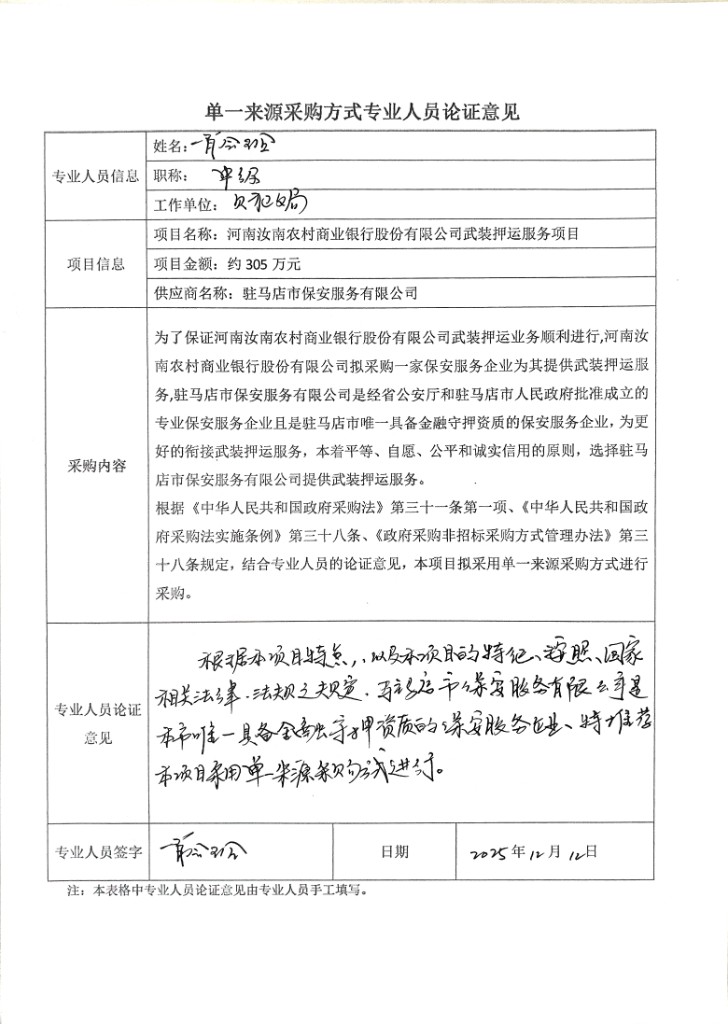 单一来源采购方式专业人员论证意见
专业人员信息
姓名：
职称： 中级
工作单位： 财政局
项目信息
项目名称：河南汝南农村商业银行股份有限公司武装押运服务项目
项目金额：约 305 万元
供应商名称：驻马店市保安服务有限公司
采购内容
为了保证河南汝南农村商业银行股份有限公司武装押运业务顺利进行,河南汝
南农村商业银行股份有限公司拟采购一家保安服务企业为其提供武装押运服
务,驻马店市保安服务有限公司是经省公安厅和驻马店市人民政府批准成立的
专业保安服务企业且是驻马店市唯一具备金融守押资质的保安服务企业，为更
好的衔接武装押运服务，本着平等、自愿、公平和诚实信用的原则，选择驻马
店市保安服务有限公司提供武装押运服务。
根据《中华人民共和国政府采购法》第三十一条第一项、《中华人民共和国政
府采购法实施条例》第三十八条、《政府采购非招标采购方式管理办法》第三
十八条规定，结合专业人员的论证意见，本项目拟采用单一来源采购方式进行
采购。
专业人员论证
意见
根据本项目特点，以及本项目的特征、按照、国家
相关法律、法规之规定，驻马店市保安服务有限公司是
本市唯一具备金融守押资质的保安服务企业、特推荐
本项目采用单一来源采购方式进行。
专业人员签字
日期
2025年12月12日
注：本表格中专业人员论证意见由专业人员手工填写。